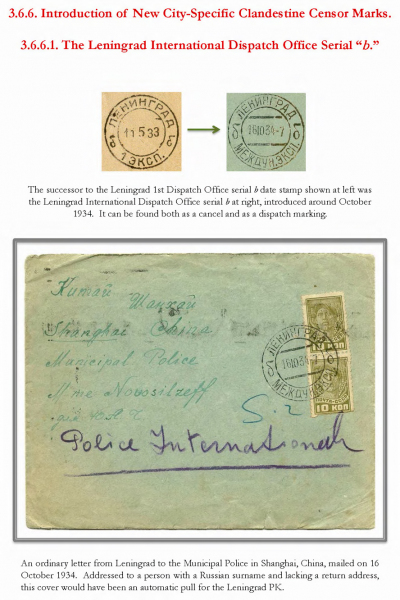 3.6.6. Introduction of New City-Specific Clandestine Censor Marks.
3.6.6.1. The Leningrad International Dispatch Office Serial “b.”
ЛЕНИНГРАД
11 5 33
1 ЭКСП.
ЛЕНИНГРАД
161034-7
МЕЖДУН.ЭКСП.
The successor to the Leningrad 1st Dispatch Office serial b date stamp shown at left was
the Leningrad International Dispatch Office serial b at right, introduced around October
1934. It can be found both as a cancel and as a dispatch marking.
Китай Шанхай
Shanghai China
Municipal Police
Mme Novositzeff
для
S. 2
Police International
ЛЕНИНГРАД
161034-7
МЕЖДУН.ЭКСП.
10 КОП
An ordinary letter from Leningrad to the Municipal Police in Shanghai, China, mailed on 16
October 1934. Addressed to a person with a Russian surname and lacking a return address,
this cover would have been an automatic pull for the Leningrad PK.